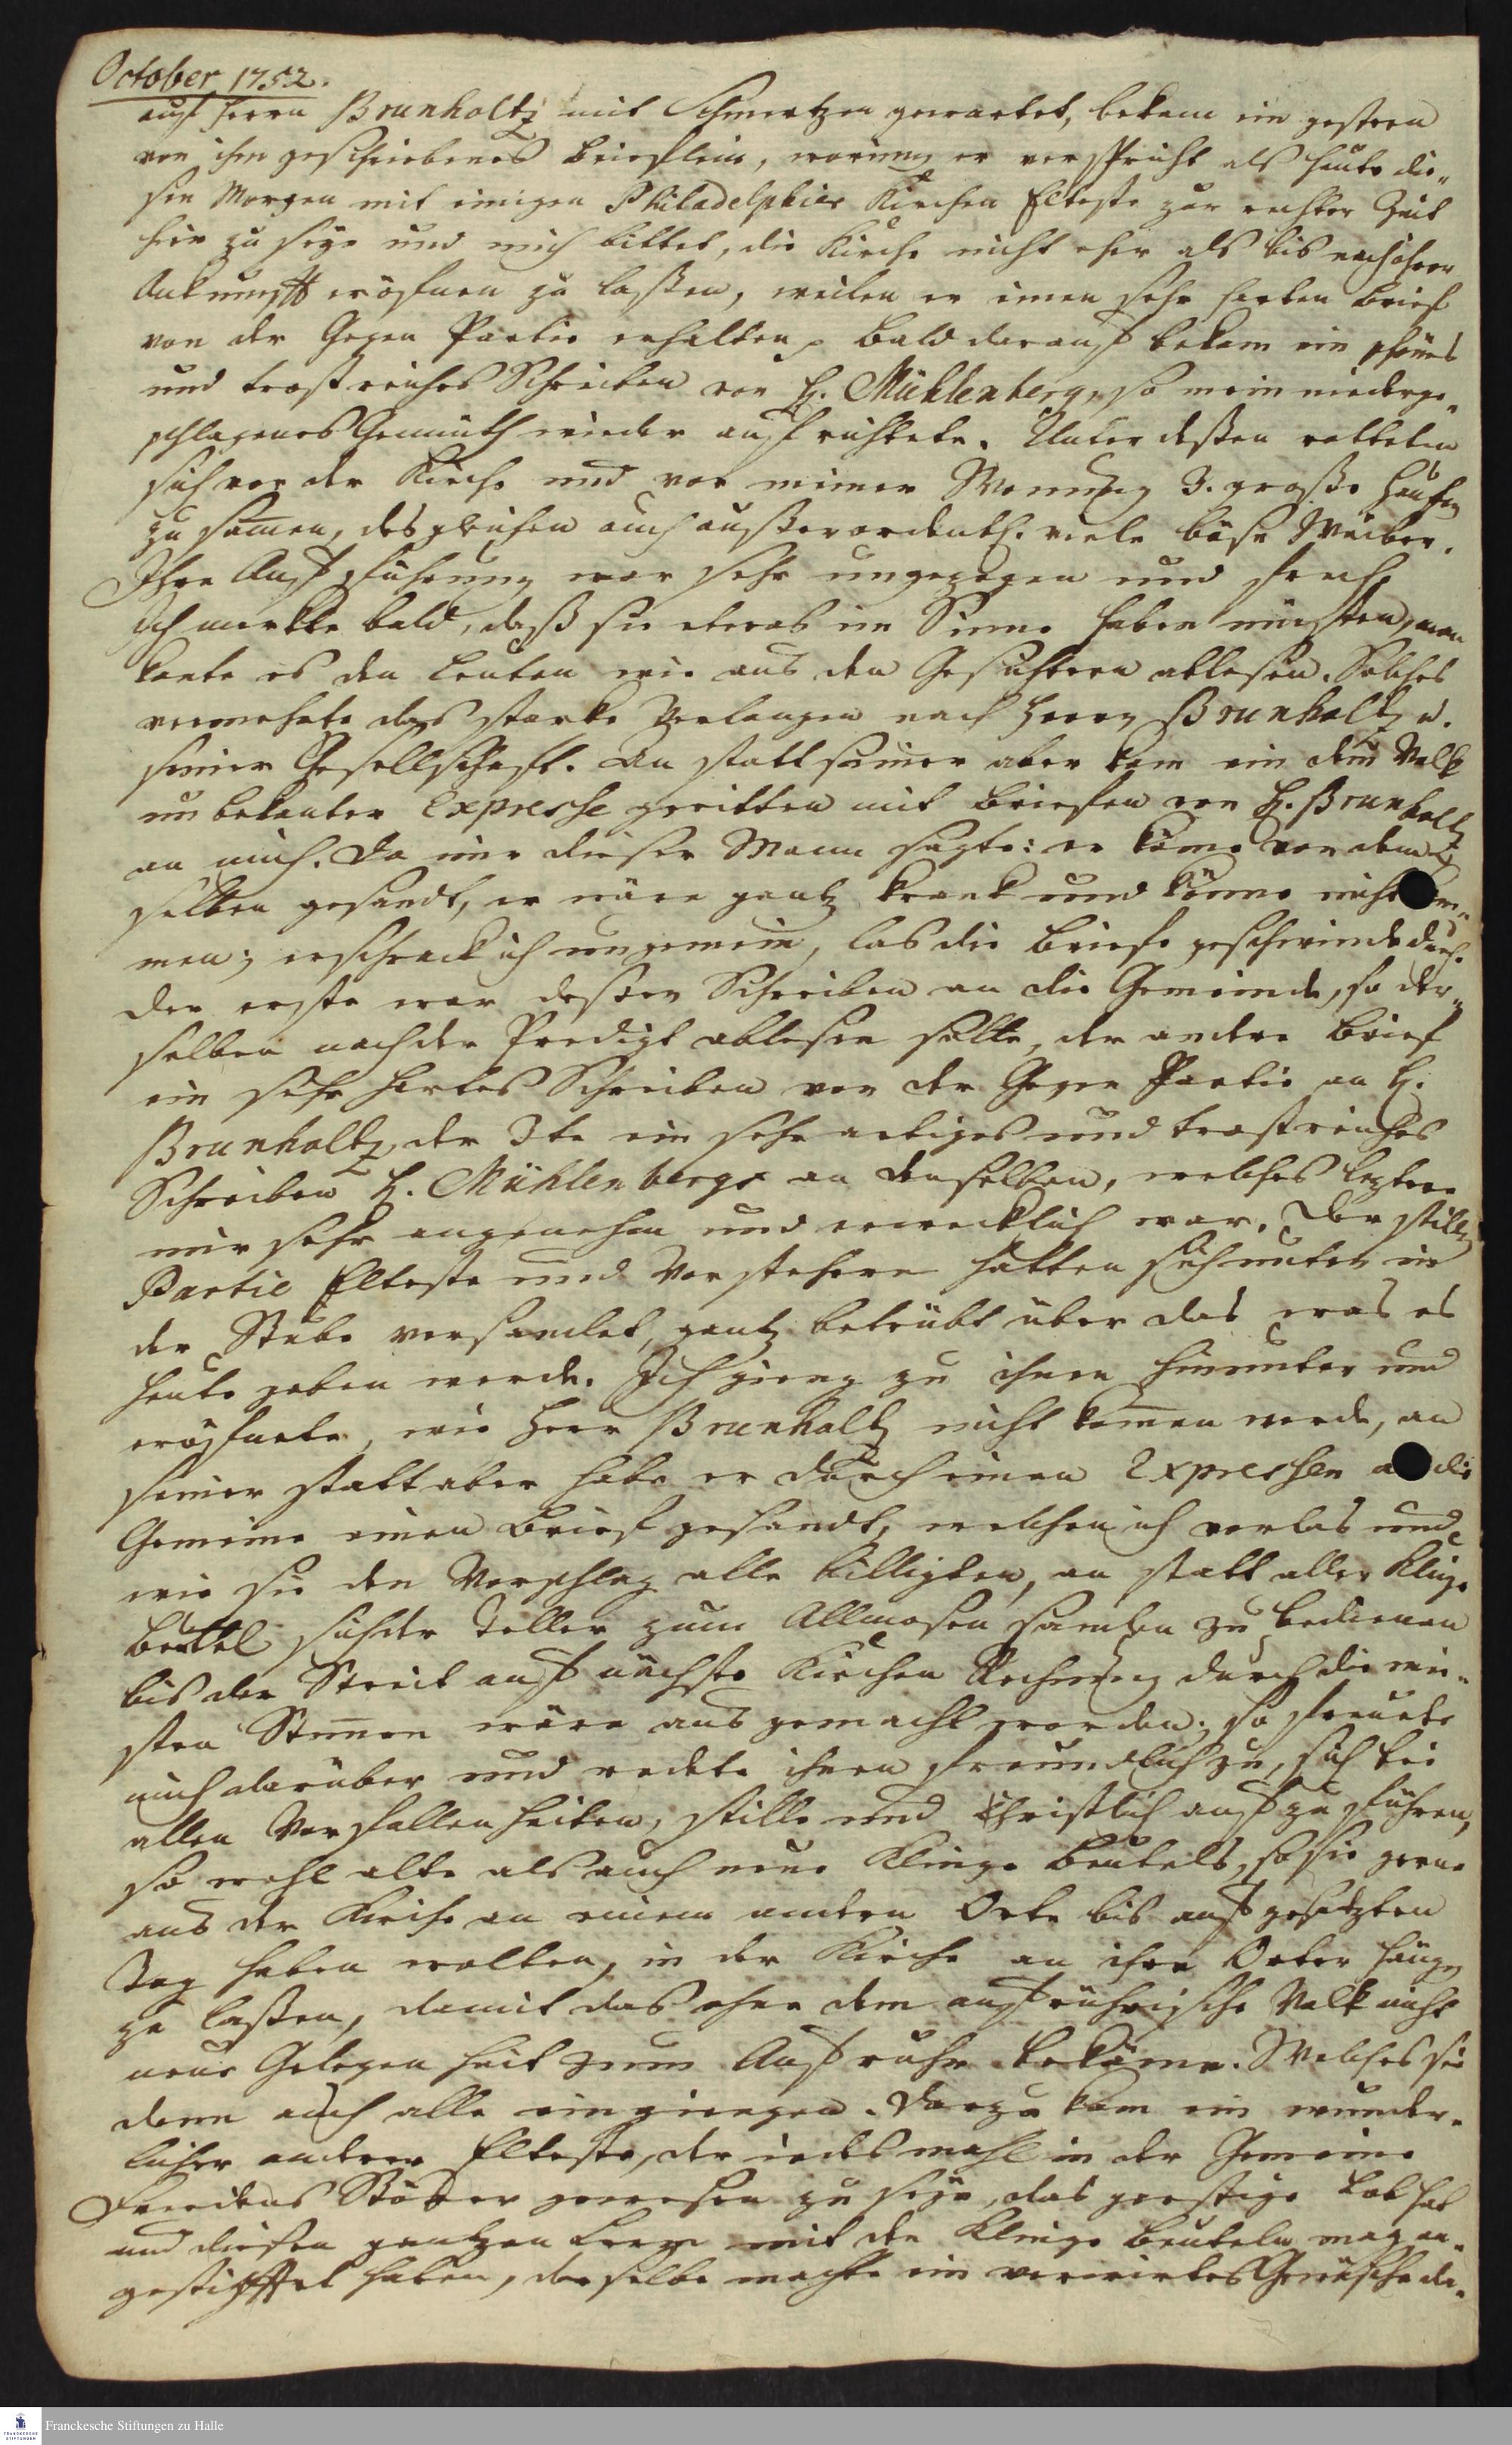 October 1752.
auf Herrn Brunholtz mit Schmertzen gewartet, bekam ein gestern
von ihm geschriebenes Brieflein, worinn er verspricht als heute die„
sen Morgen mit einigen Philadelphier Kirchen Elteste zur rechter Zeit
hier zu seyn und mich bittet, die Kirche nicht eher als bis nach ihrer
Ankunfft eröfnen zu laßen, weilen er einen sehr harten Brief
von der Gegen Partie erhalten. Bald darauf bekam ein schönes
und trostreiches Schreiben von H. Mühlenberg, so mein niederge„
schlagenes Gemüth wieder aufrichtete. Unterdeßen rotteten
sich vor der Kirche und vor meiner Wonung 3. große Haufen
zusamen, desgleichen auch außerordentl. viele böse Weiber.
Ihre Aufführung war sehr ungezogen und frech.
Ich merkte bald, daß sie etwas im Sinne haben müsten, man
konte es den Leuten wie aus den Gesichtern ablesen. Solches
vermehrte das starke Verlangen nach Herrn Brunholtz u.
seiner Gesellschaft. An statt seiner aber kam ein dem Volk
unbekanter Expresse geritten mit Briefen von H. Brunholtz
an mich. Da mir dieser Mann sagte: er käme von dem„
selben gesandt, er wäre gantz krank und könne nicht
men; erschrack ich ungemein, las die Briefe geschwinde durch.
Der erste war deßen Schreiben an die Gemeinde, so der„
selben nach der Predigt ablesen solte, der andere Brief
ein sehr hartes Schreiben von der Gegen Partie an H.
Brunholtz, der 3te ein sehr artiges und trostreiches
Schreiben H. Mühlenbergs an denselben, welches letztere
mir sehr angenehm und erwecklich war. Der stillen
Partie Elteste und Vorstehere hatten sich unten in
der Stube versamlet, gantz betrübt über das was es
heute geben werde. Ich gieng zu ihnen hinunter und
eröfnete, wie Herr Brunholtz nicht komen werde, an
seiner statt aber habe er durch einen Expressen an die
Gemeine einen Brief gesandt, welchen ich vorlas und
wie sie den Vorschlag alle billigten, an statt aller Klinge
Beutel sich der Teller zum Allmosen samlen zu bedienen
bis der Streit auf nächste Kirchen Rechnung durch die mei„
sten Stimen wäre ausgemacht worden; so freuete
mich darüber und redete ihnen freundlich zu, sich bei
allen Vorfallenheiten, stille und Christlich aufzuführen,
so wohl alte als auch neue Klinge Beutels, so sie gerne
aus der Kirche an einem andern Orte bis auf gesetzten
Tag haben wolten, in der Kirche an ihren Orten hängen
zu laßen, damit das ohne dem aufrührische Volk nicht
neue Gelegenheit zum Aufruhr bekäme. Welches sie
denn auch alle eingiengen. Darzu kam ein wunder„
licher anderer Elteste, der iedesmahl in der Gemeine
Friedens Störer gewesen zu seyn, das garstige Lob hat
und diesen gantzen Lerm mit den Klinge Beuteln mag an„
gestifftet haben, derselbe machte ein verwirtes Gewäsche da„
Franckesche Stiftungen zu Halle